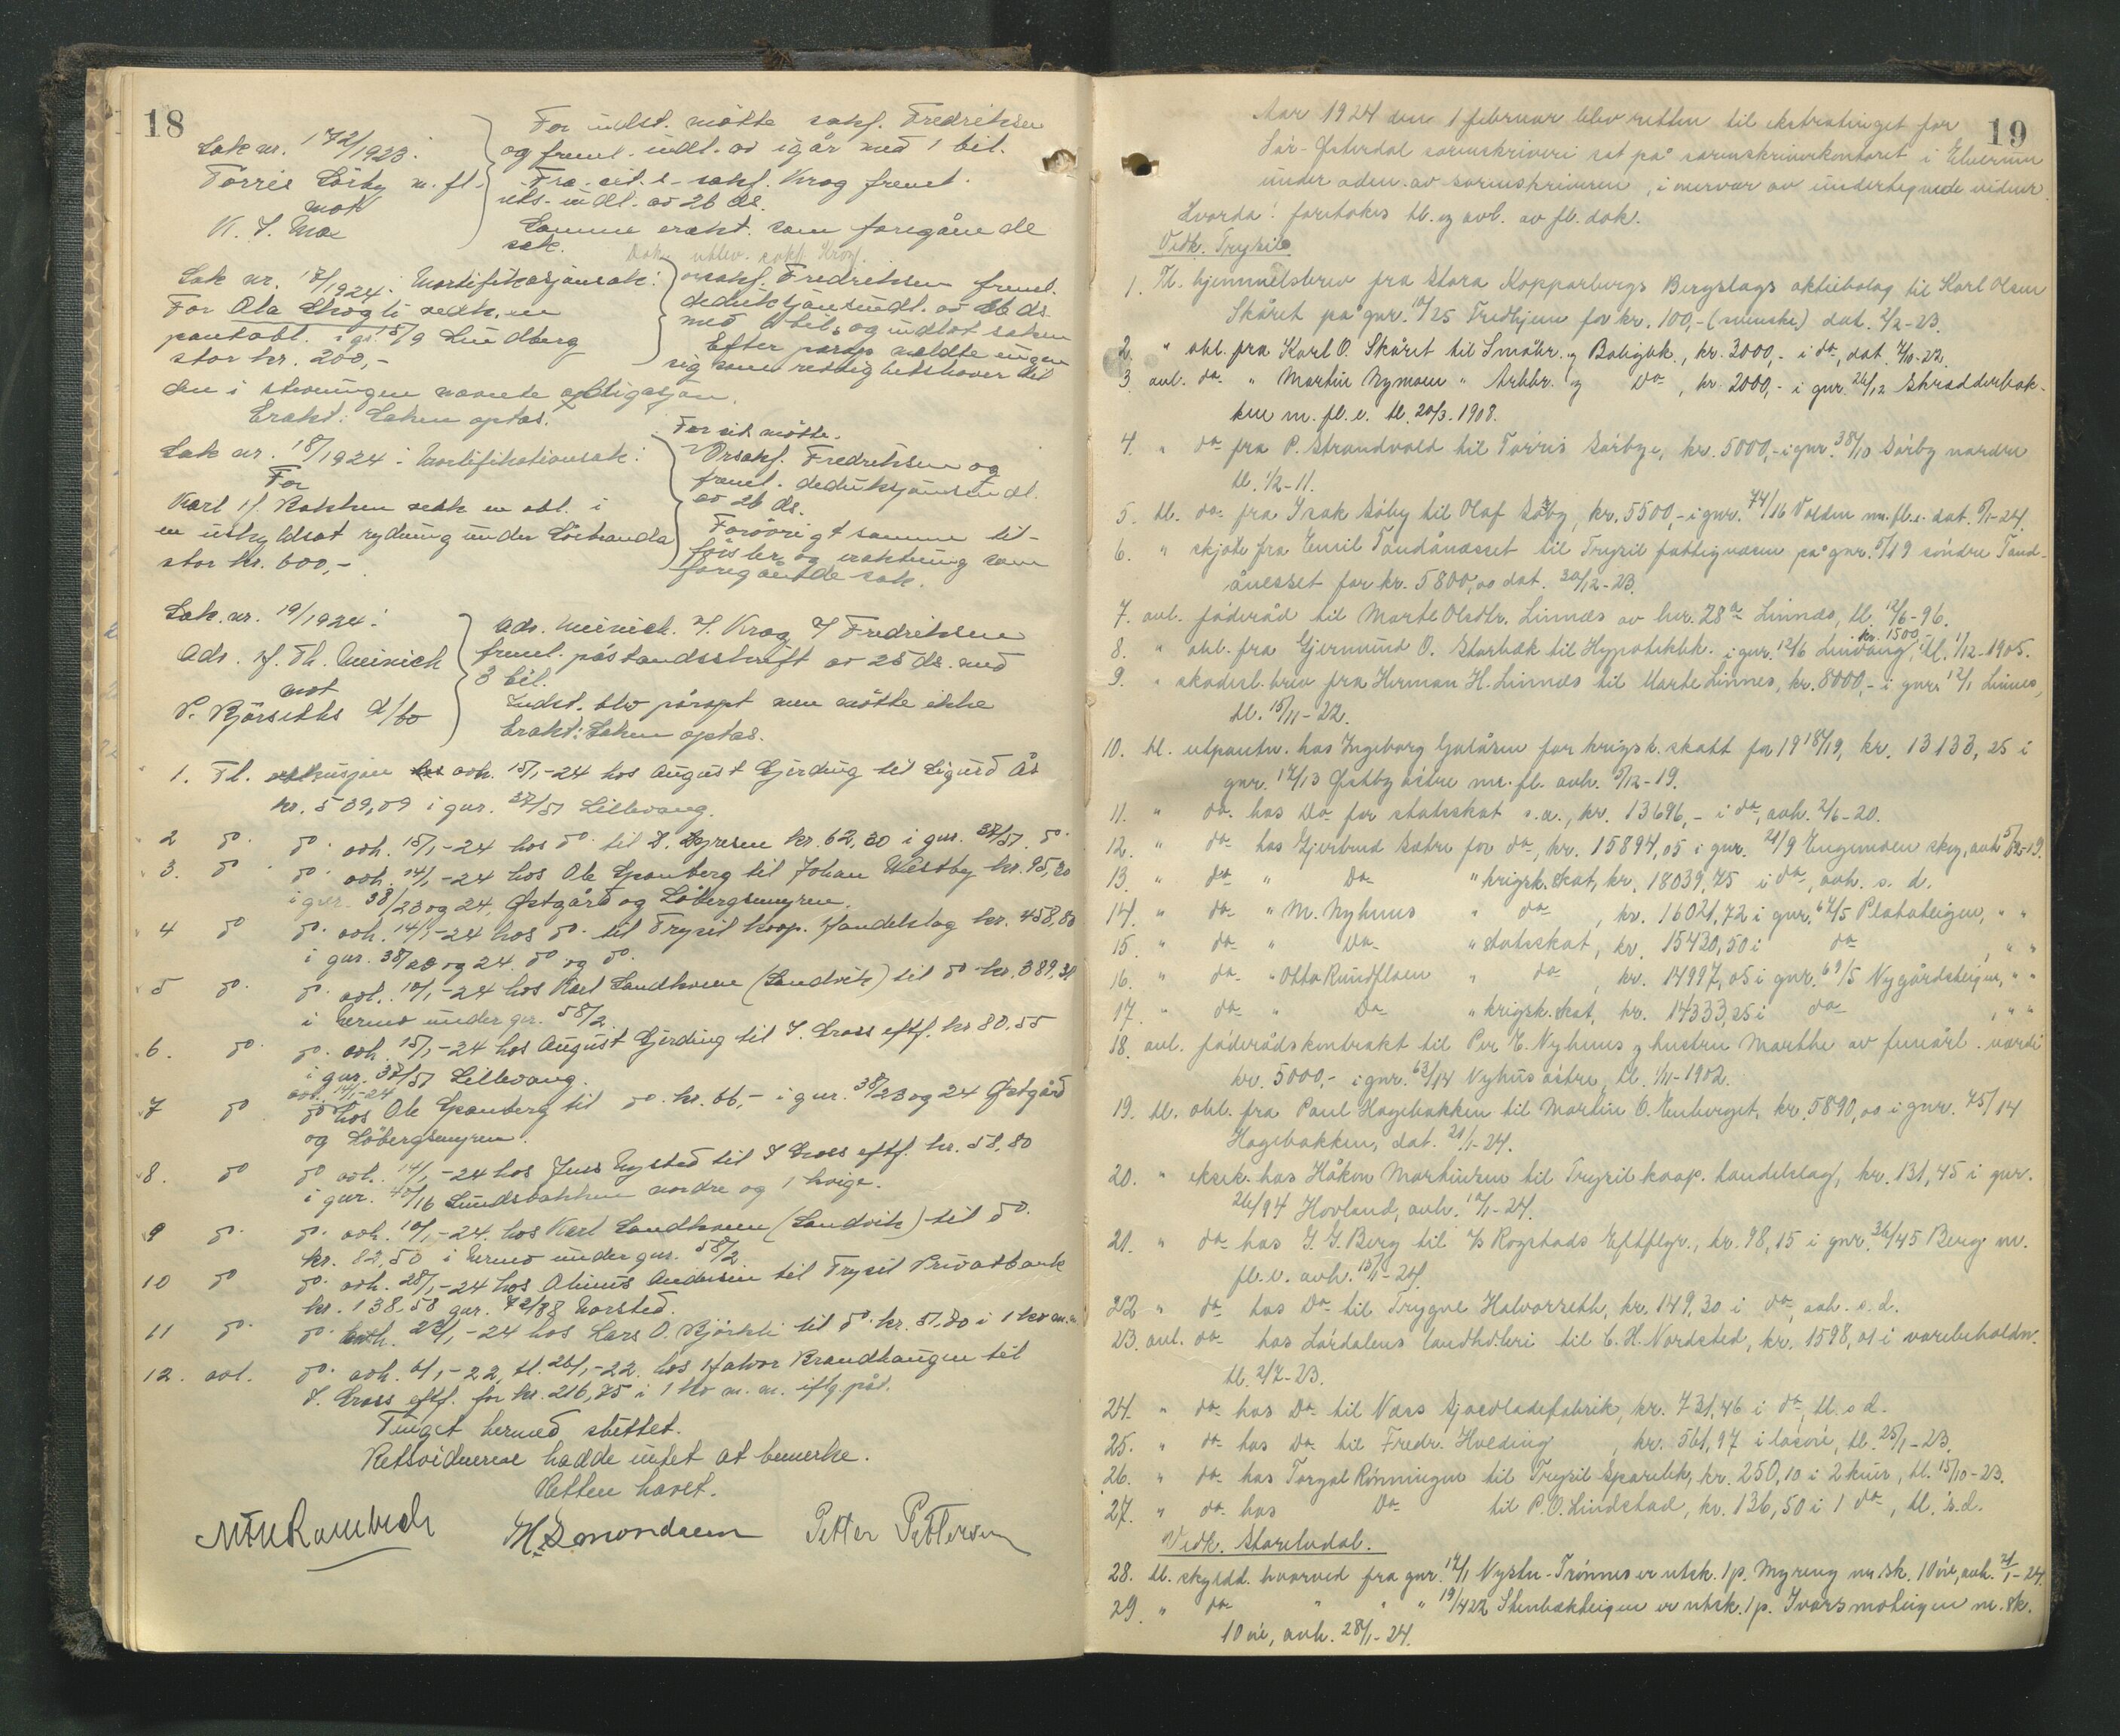 18
Sak nr. 172/1923:
Törris Sörby m. fl.
mot
K. J. Moe
For indst. mötte sakf. Fredriksen
og freml. indl. av igår med 1 bil.
Fra cit. s. sakf. Krog freml.
rets-indl. av 26 ds.
Samme erakt. som foregående
sak.
Dok. utlev. sakf. Krog.
Sak nr. 17/1924: Mortifikasjonssak:
For Ola Skogli vedk. en
pantobl. i gr. 15/9 Lindberg
stor kr. 200,-
orsakf. Fredriksen freml.
deduksjonsindl. av 26 ds.
med bil. og indlot saken
Efter paarop meldte ingen
sig som rettighetshaver til
den i stevningen nævnte obligasjon.
Erakt: Saken optas.
Sak nr. 18/1924: Mortifikationssak:
For
Karl H. Bakken vedk. en obl. i
en uskyldsat rydning under Lörstranda
stor kr. 600,-
For cit. mötte
Orsakf. Fredriksen og
freml. deduksjonsindl.
av 26 ds.
Forövrigt samme til-
försler og eraktning som
foregående sak.
Sak. nr. 19/1924:
Adv. H. Th. Meinich
mot
P. Björseths d/bo
Adv. Meinich. f. Krog f. Fredriksen
freml. påstandsskrift av 25 ds. med
3 bil.
Indst. blev påropt men mötte ikke
Erakt: Saken optas.
1. Tl. avh. 15/1-24 hos August Gjerding til Sigurd Ås
kr. 509,09 i gnr. 37/51 Lillevang.
2 do. do. avh. 15/1-24 hos do. til S. kr. 62,30 i gnr. 37/51. do.
3. do. do. avh. 14/1-24 hos Ole Granberg til Johan Westby kr. 95,20
i gnr. 38/23 og 24, Östgård og Löbergsmyren.
4 do do. avh. 14/1-24 hos do. til Trysil koop. Handelslag kr. 458,80
i gnr. 38/23 og 24. do og do.
5 do. do. avh. 10/1-24 hos Karl Sandhoven (Sandvik) til do. kr. 389,31
i Nermo under gnr. 58/2.
6. do. do. avh. 15/1-24 hos August Gjerding til J. Gross eftf. kr 80.55
i gnr. 37/51 Lillevang.
avh. 14/1-24
7 do do hos Ole Granberg til do. kr. 66,- i gnr. 38/23 og 24 Östgård
og Löbergsmyren.
8. do do avh. 14/1-24 hos Jens Nysted til J Gross eftf. kr. 58,80
i gnr. 45/16 Lundsbakken nordre og 1 kvige.
9 do. do. avh. 10/1-24 hos Karl Sandhoven (Sandvik) til do.
kr. 82,50 i Nermo under gnr. 58/2
10 do do. avh. 28/1-24 hos Olinus Andersen til Trysil Privatbank
kr. 138,58 gnr. 72/88 Norsted.
11 do. do. avh. 22/1-24 hos Lars O. Björkli til do. kr. 51,80 i 1 ko m. m.
12. avl. do. avh. 6/1-22, tl. 26/1-22. hos Halvor Brandhaugen til
J. Gross eftf. for kr. 216,75 i 1 ko m. m. iflg. påt.
Tinget hermed sluttet.
Retsvidnerne hadde intet at bemerke.
Retten hævet.
H. Smordaen Petter Pettersen
19
Aar 1924 den 1 februar blev retten til ekstratinget for
Sör-Østerdal sorenskriveri sat på sorenskriverkontoret i Elverum
under adm. av sorenskriveren, i nærvær av undertegnede vidner.
Hvorda: foretokes tl. og avl. av fl. dok.
Vedk. Trysil
1. Tl. hjemmelsbrev fra Stora Kopparbergs Bergslags aktiebolag til Karl Olsen
Skåret på gnr. 10/25 Fredhjem for kr. 100,- (svenske) dat. 2/2-23.
2. " obl. fra Karl O. Skåret til Småbr. og Boligbk., kr. 3000,- i do, dat. 7/10-22.
3 avl. do. " Martin Nymoen " Arbbr. og Do, kr. 2000,- i gnr. 26/12 Skradderbak-
ken m. fl. e. tl. 20/3. 1908.
4. " do fra P. Strandvold til Törris Sörbye, kr. 5000,- i gnr. 38/10 Sörby nordre
tl. 1/2-11.
5. tl. do. fra Isak Söby til Olaf Söby, kr. 5500,- i gnr. 74/16 Volden m. fl. e. dat. 5/1-24.
6. " skjöte fra Emil Tandånesset til Trysil fattigvæsen på gnr. 5/19 söndre Tand-
ånesset for kr. 5800,00 dat. 30/12-23.
7. avl. föderåd til Marte Olsdtr. Linnæs av lnr. 28a Linnæs, tl. 12/6-96.
8. " obl. fra Gjermund O. Storbæk til Hypotekbk. i gnr. 12/6 Lindvang, kr. 1500,- tl. 1/12-1905.
9. " skadesl. brev fra Herman H. Linnæs til Marte Linnes, kr. 8000,- i gnr. 12/1 Linnes,
tl. 15/11-22.
10. tl. utpantn. hos Ingeborg Galåsen for krigsk. skatt for 1918/19, kr. 13133,25 i
gnr. 14/13 Østby östre m. fl. avh. 5/12-19.
11. " do. hos Do for statsskat s. a., kr. 13696,- i do, avh. 2/6-20.
12. " do hos Gjertrud Sætre for do, kr. 15894,05 i gnr. 21/9 Engemoen skog, avh. 5/12-19.
13. " do " Do " krigsk. skat, kr. 18039,75 i do, avh. s. d.
14. " do " M. Nyhuus " do, kr. 16021,72 i gnr. 64/5 Plateteigen, " "
15. " do " Do " statsskat, kr. 15420,50 i do, " "
16. " do " Otto Rundfloen " do, kr. 14997,05 i gnr. 69/5 Nygårdsteigen, " "
17. " do " Do " krigsk. skat, kr. 14333,25 i do, " "
18. avl. föderådskontrakt til Per E. Nyhuus og hustru Marthe av femårl. værdi
kr. 5000,- i gnr. 63/14 Nyhus östre, tl. 1/11-1902.
19. tl. obl. fra Paul Hagebakken til Martin O. Enberget, kr. 5890,00 i gnr. 75/14
Hagebakken, dat. 21/1-24.
20. " eksek. hos Håkon Martinsen til Trysil koop. handelslag, kr. 131,45 i gnr.
26/94 Hovland, avh. 10/1-24.
21. " do hos G. G. Berg til Rogstads Eftflgr., kr. 98,15 i gnr. 36/45 Berg m.
fl. e. avh. 15/1-24.
22 " do hos Do til Trygve Halvorseth, kr. 149,30 i do, avh. s. d.
23. avl. do hos Lördalens landhdleri til C. H. Nordsted, kr. 1598,01 i varebeholdn.
tl. 2/7-23.
24. " do hos Do til Næss Sjocoladefabrik, kr. 731,46 i do, tl. s d.
25. " do hos Do til Fredr. Hvelding, kr. 561,97 i lösöre, tl. 25/1-23.
26. " do hos Torgal Rönningen til Trysil Sparebk, kr. 250,10 i 2 kuer, tl. 15/10-23.
27. " do hos Do til P. O. Lindstad, kr. 136,50 i 1 do, tl. s. d.
Vedk. Storelvdal.
28. tl. skyldd. hvorved fra gnr. 14/1 Nystu-Trönnes er utsk. 1 p. Myreng m. sk. 10 öre, avh. 21/1-24
29. " do " " " 19/422 Stenbækteigen er utsk. 1 p. Ivarsmoteigen m. sk.
10 öre, avh. 28/1-24.